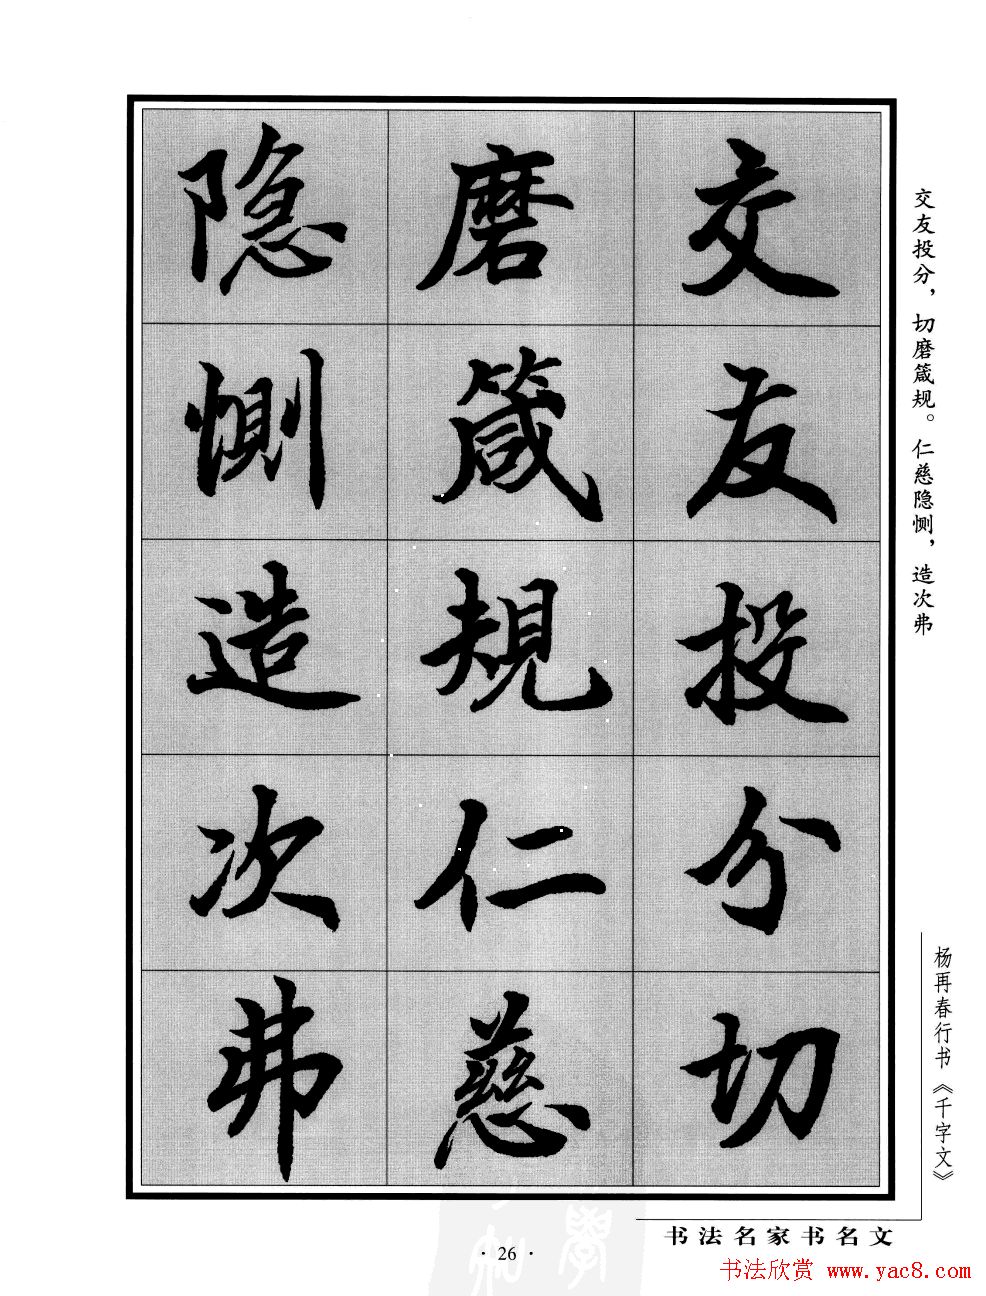 交友投分切
磨箴規仁慈
隐恻造次弗
交友投分，切磨箴规。仁慈隐恻，造次弗
杨再春行书《千字文》
书法名家书名文
·26·
书法欣赏 www.yac8.com